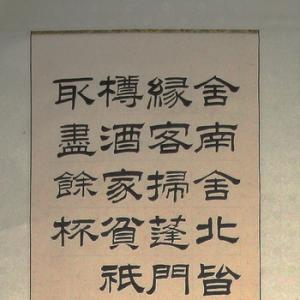 舍南舍北皆
緣客掃蓬門
樽酒家貧祇
取盡餘杯